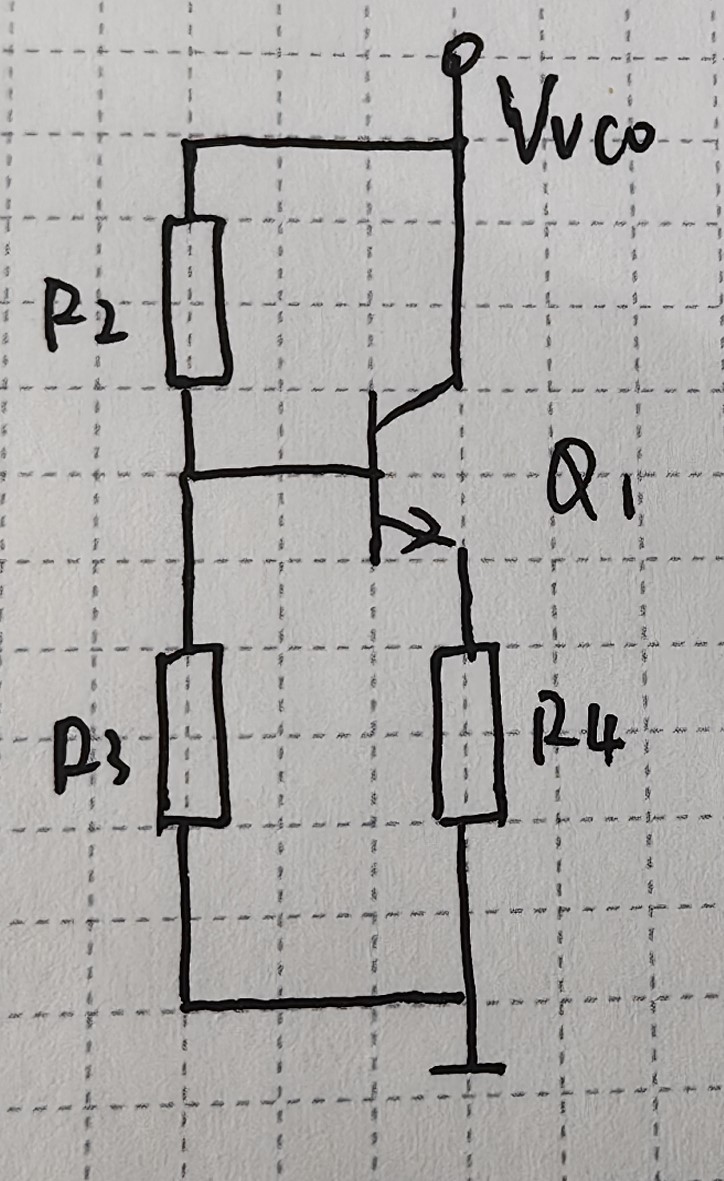 Vvco
R2
Q1
R3
R4